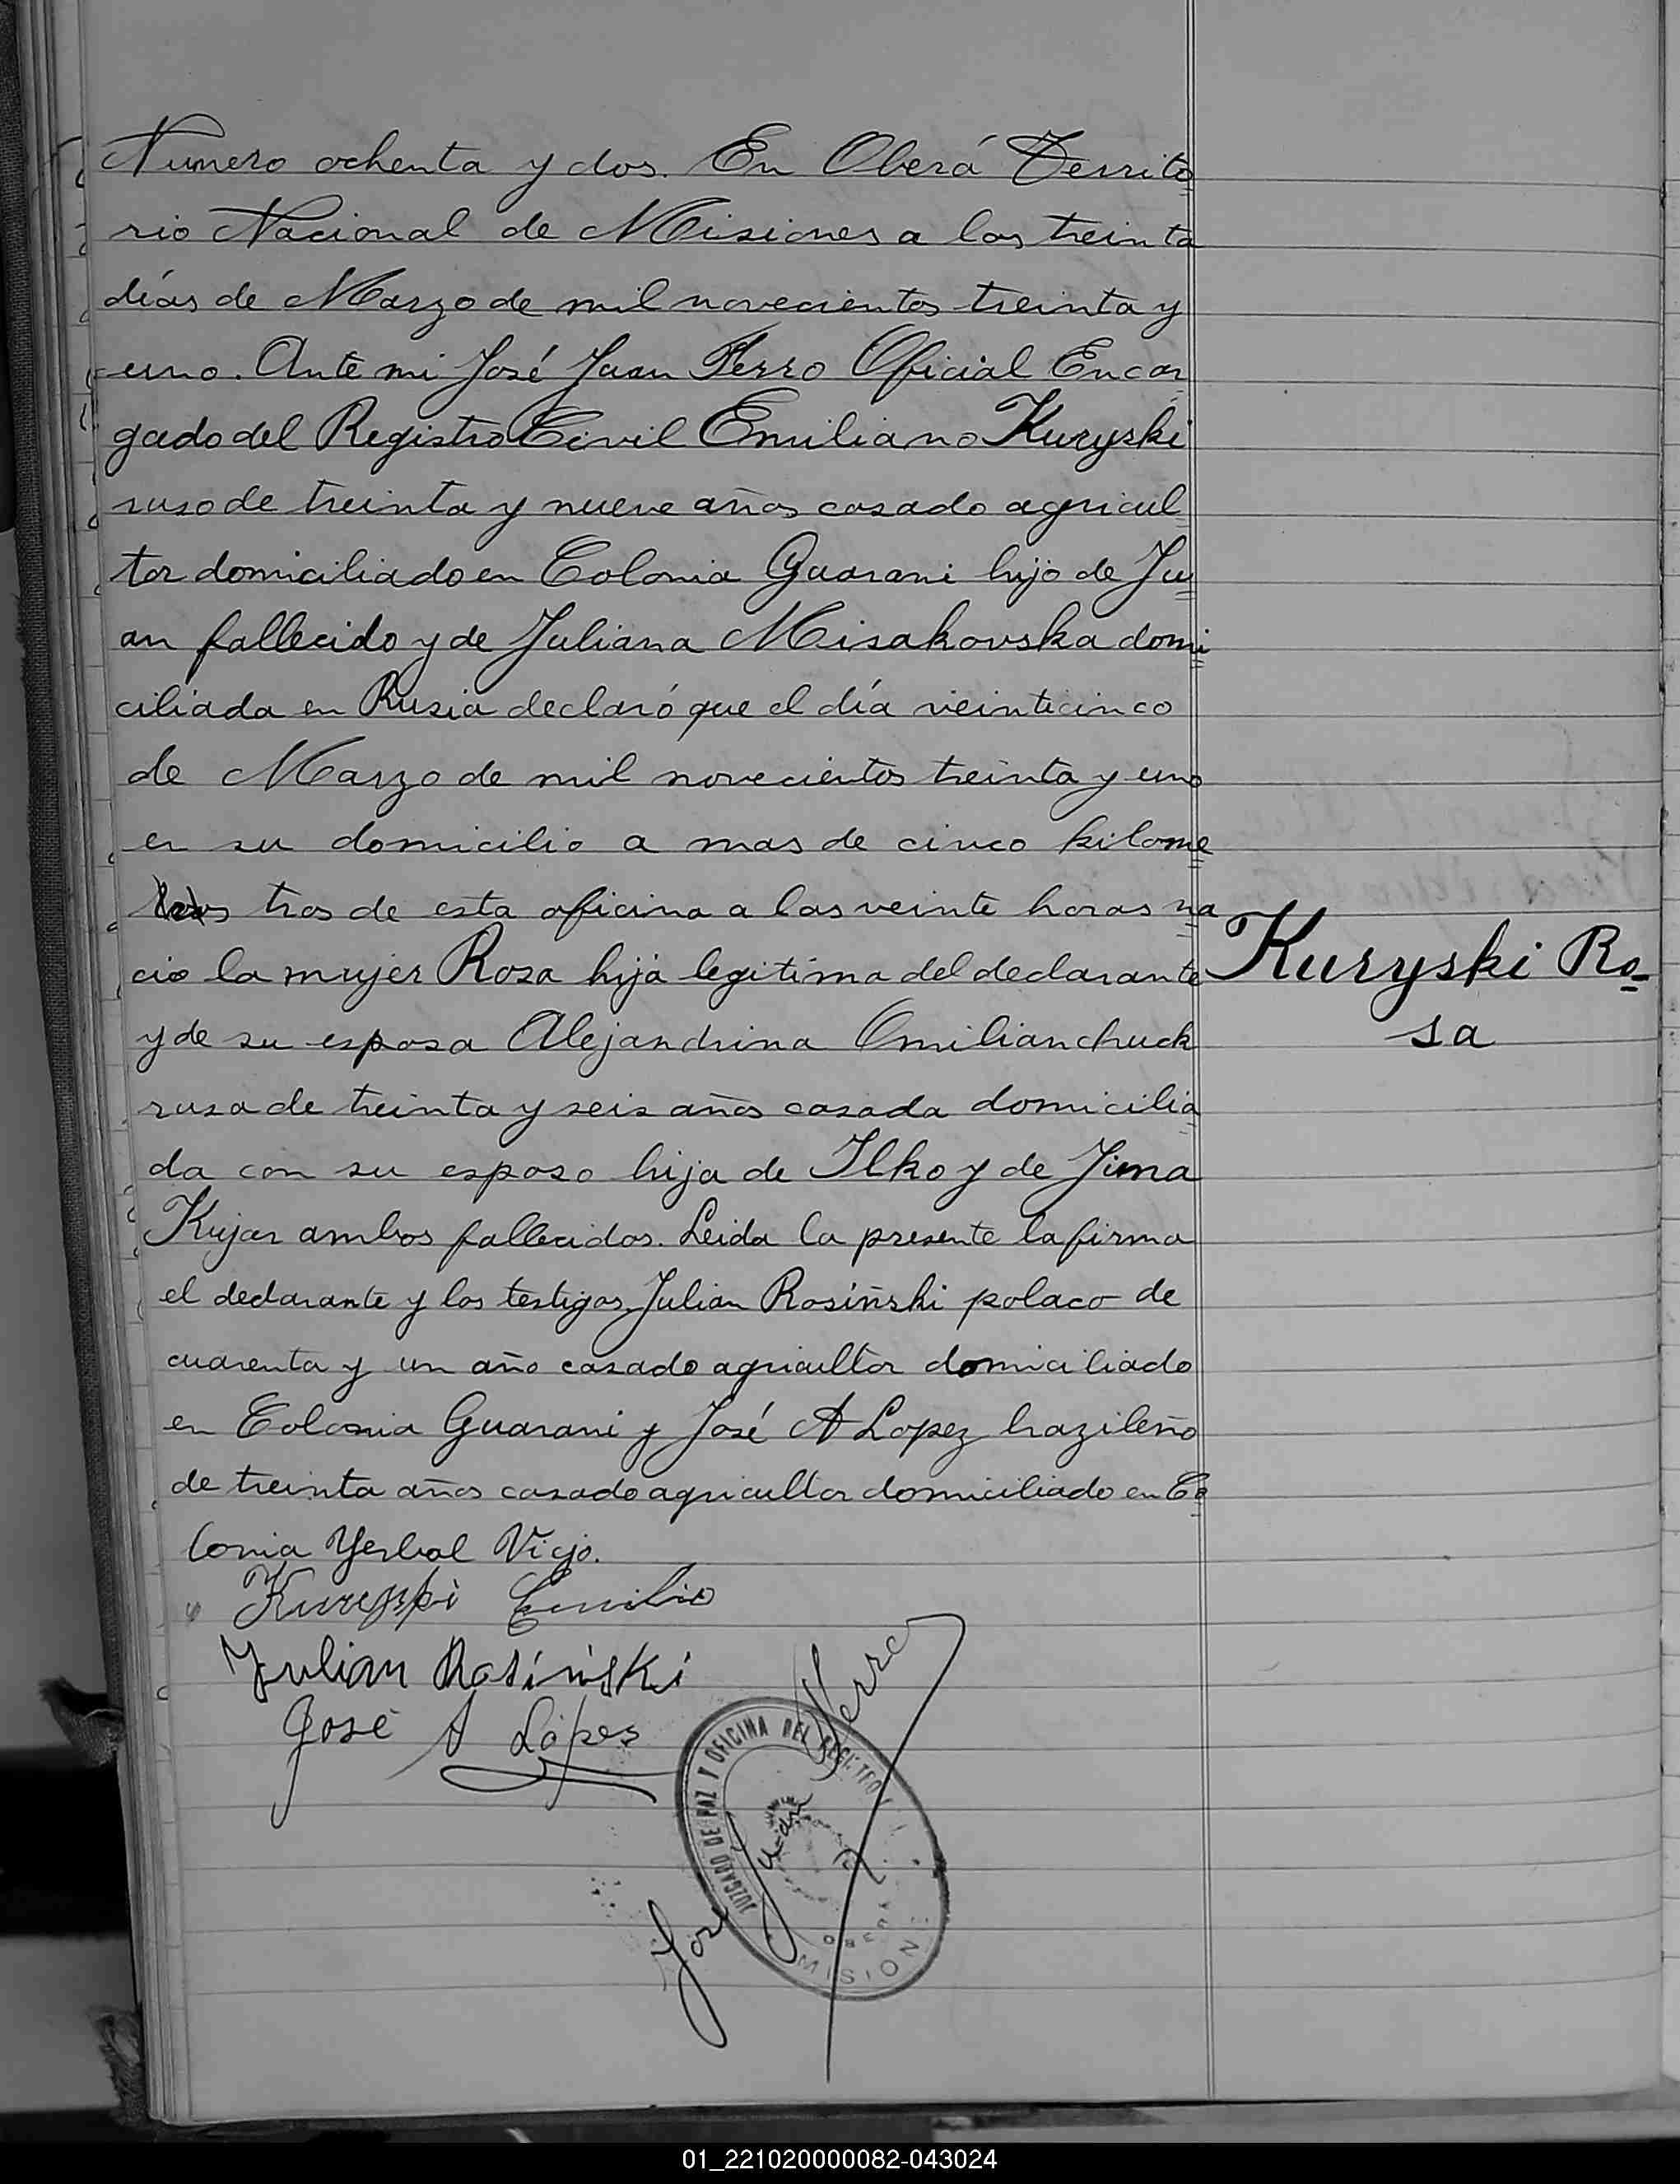 Numero ochenta y dos. En Oberá Territo
rio Nacional de Misiones a los treinta
días de Marzo de mil novecientos treinta y
uno. Ante mi José Juan Ferro Oficial Encar
gado del Registro Civil Emiliano Kuryski
ruso de treinta y nueve años casado agricul
tor domiciliado en Colonia Guarani hijo de Ju
an fallecido y de Juliana Misakovska domi
ciliada en Rusia declaró que el día veinticinco
de Marzo de mil novecientos treinta y uno
en su domicilio a mas de cinco kilome
tros de esta oficina a las veinte horas na
cio la mujer Rosa hija legitima del declarante
Kuryski Ro-
sa
y de su esposa Alejandrina Omilianchuck
rusa de treinta y seis años casada domicilia
da con su esposo hija de Ilko y de Jima
Kujar ambos fallecidos. Leida la presente la firma
el declarante y los testigos Julian Rosiñski polaco de
cuarenta y un año casado agricultor domiciliado
en Colonia Guarani y José A Lopez brazileño
de treinta años casado agricultor domiciliado en Co
lonia Yerbal Viejo.
Kuryski Emilio
Julian Rosiński
José A López
José Juan Ferro
JUZGADO DE PAZ Y OFICINA DEL REGISTRO
MISIONE
01_221020000082-043024